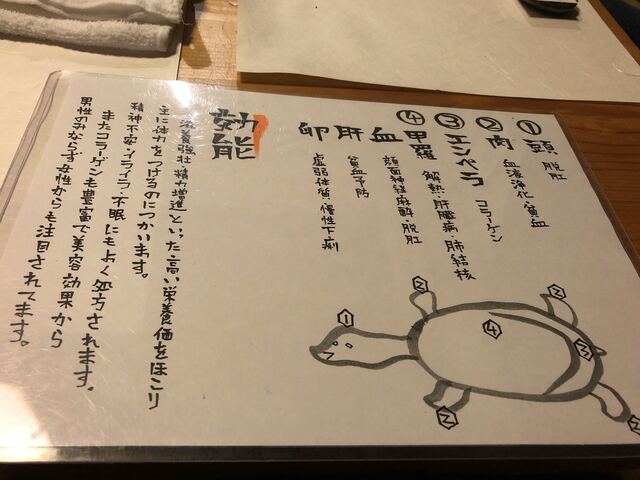 ①頭 脱肛
②肉 血液浄化・貧血
③エンペラ コラーゲン
④甲羅 解熱・肝臓病・肺結核
血 顔面神経麻酔・脱肛
肝 貧血予防
卵 虚弱体質・慢性下痢
効能
滋養強壮 精力増進といった高い栄養価をほこり
主に体力をつけるのにつかいます。
精神不安・イライラ・不眠にもよく処方されます。
またコラーゲンも豊富で美容効果から
男性のみならず女性からも注目されてます。
①
②
②
③
④
②
②